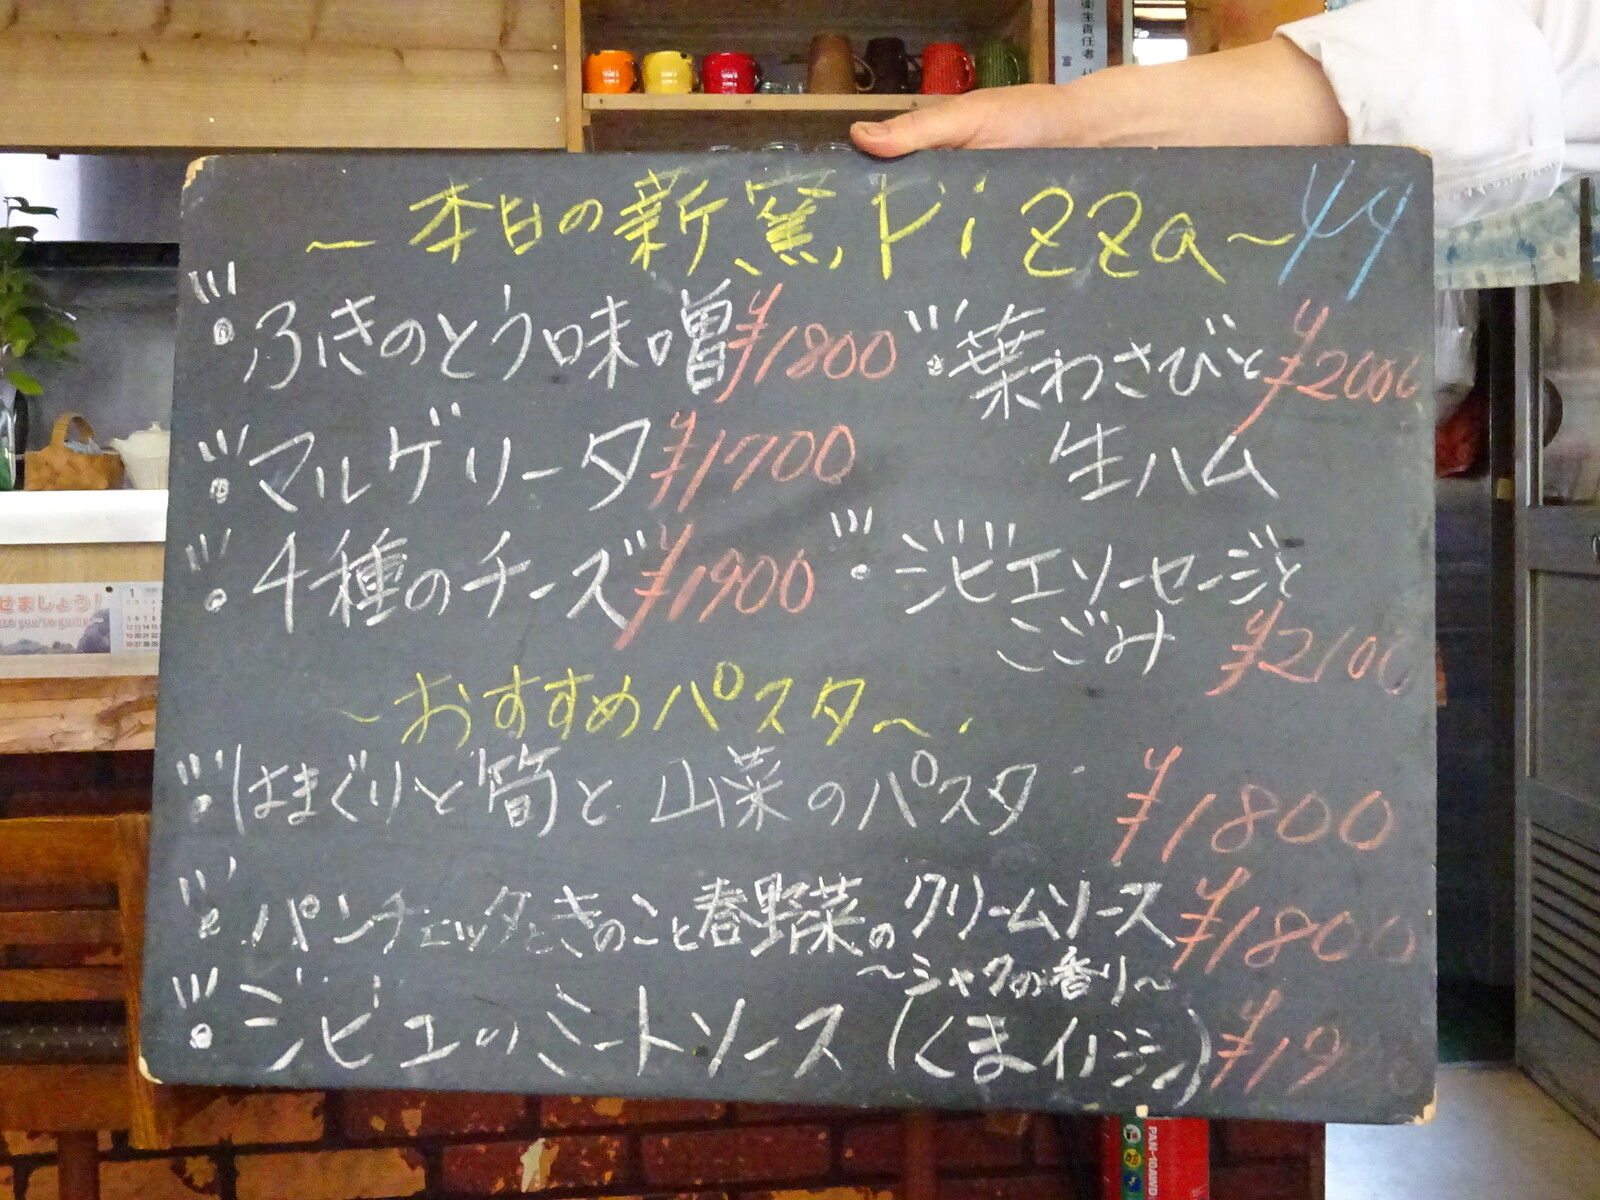 ～本日の薪窯Pizza～ 4/4
ふきのとう味噌 ¥1800
マルゲリータ ¥1700
4種のチーズ ¥1900
葉わさびと ¥2000
生ハム
ジビエソーセージと
こごみ ¥2100
～おすすめパスタ～
はまぐりと筍と山菜のパスタ ¥1800
パンチェッタときのこと春野菜のクリームソース ¥1800
～シャクの香り～
ジビエのミートソース(くまイノシシ)
衛生責任者
せましょう!
1
PAN-10AWD